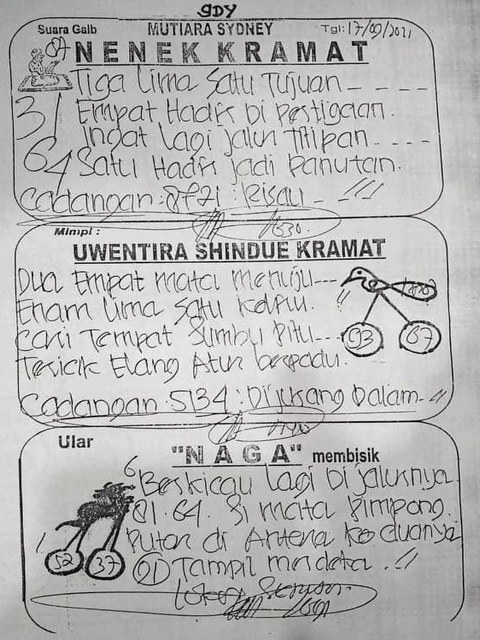 gdy
Suara Gaib MUTIARA SYDNEY Tgl: 17/09/2021
87 NENEK KRAMAT
Tiga Lima Satu Tujuan
31 Empat Hadir Di Pestigaan.
Ingat lagi jalur Titipan
64 Satu Hadir jadi Panutan.
Cadangan: 8721:
Mimpi:
UWENTIRA SHINDUE KRAMAT
Dua Empat mata menuju
Enam Lima Satu
Cari Tempat Sumbu Pitu
Elang Atur berpadu.
93 67
Cadangan: 5134: Dalam
Ular "NAGA" membisik
6 lagi Di jalurnya
81. 64. Si mata
Putar di Antena Ke duanya
52 37 91 Tampil